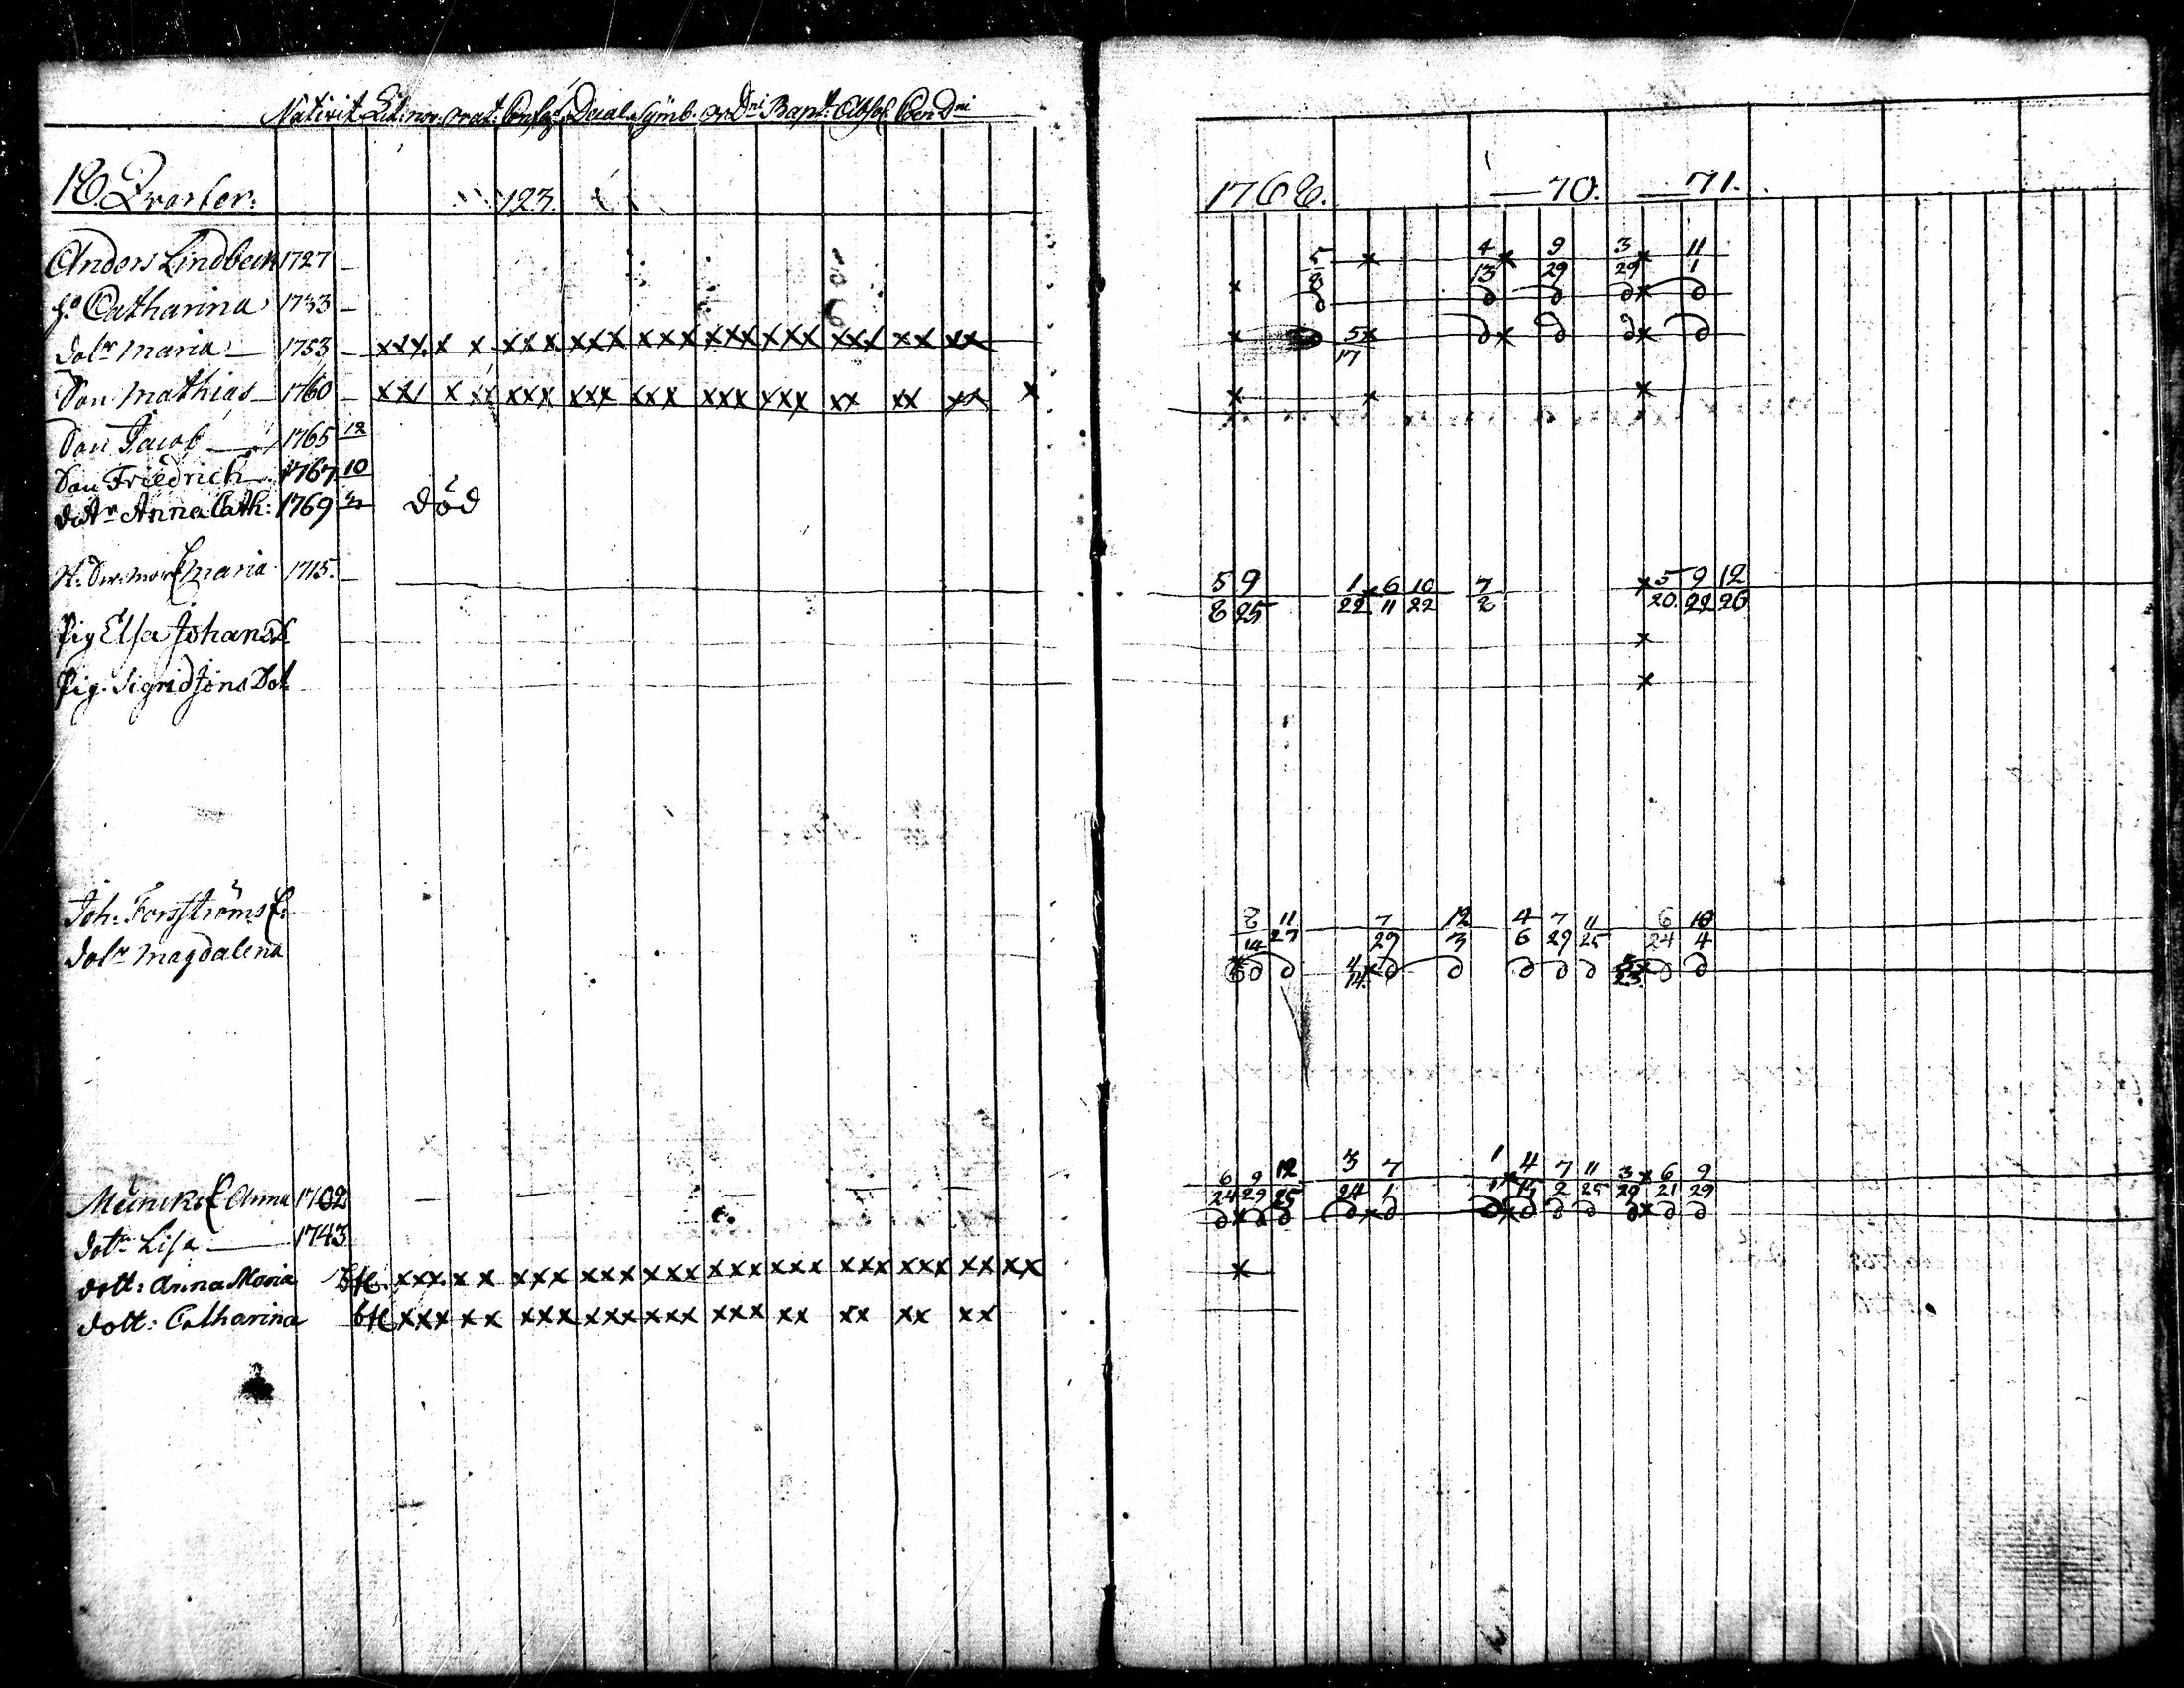 Nativit. Lit: nov. Orat: Confes: Decal. Symb. Or Dni Bapt: Absol. Cœn Dni
18. Qvarter.
123.
1768. —70. —71.
Anders Lindbeck 1727 –
5 4 9 3 11
8 13 29 29 1
h:o Catharina 1733 –
Dotr Maria — 1753 – xxx x x xxx xxx xxx xxx xxx xxx xx xx
5
17
Son Mathias — 1760 – xx x xxx xxx xxx xxx xxx xx xx xx x
Son Jacob — 1765 12
Son Friedrich — 1767 10
dotr Anna Cath: 1769 död
Maria 1715. –
5 9 1 6 10 7 5 9 12
8 25 22 11 22 2 20. 22 26
Pig Elsa Johans D
Pig. Sigrid Jöns Dot
Joh: Forsströms E:
8 11 7 12 4 7 11 6 10
14 27 29 3 6 29 25 24 4
Dotr Magdalena
4 5
14. 23.
E Anna 1702
6 9 12 3 7 1 4 7 11 3 6 9
24 29 25 24 1 1 15 2 25 29 21 29
Dotr Lisa — 1743
dott: Anna Maria xxx x x xxx xxx xxx xxx xxx xxx xxx xx xx
dott: Catharina xxx x x xxx xxx xxx xxx xx xx xx xx